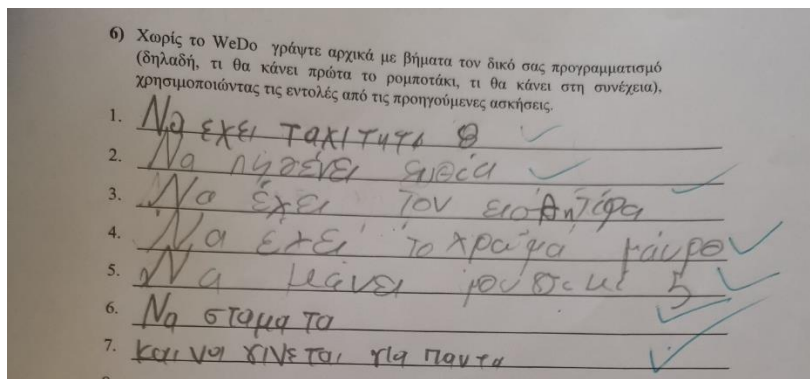 6) Χωρίς το WeDo γράψτε αρχικά με βήματα τον δικό σας προγραμματισμό
(δηλαδή, τι θα κάνει πρώτα το ρομποτάκι, τι θα κάνει στη συνέχεια),
χρησιμοποιώντας τις εντολές από τις προηγούμενες ασκήσεις.
1. Να εχει ταχιτητα 8
2. Να πηγένει ευθεία
3. Να έχει τον εισθητύρα
4. Να έχει το χρώμα μάυρο
5. Να κάνει μουσικί 5
6. Να σταματα
7. και να γινεται για παντα